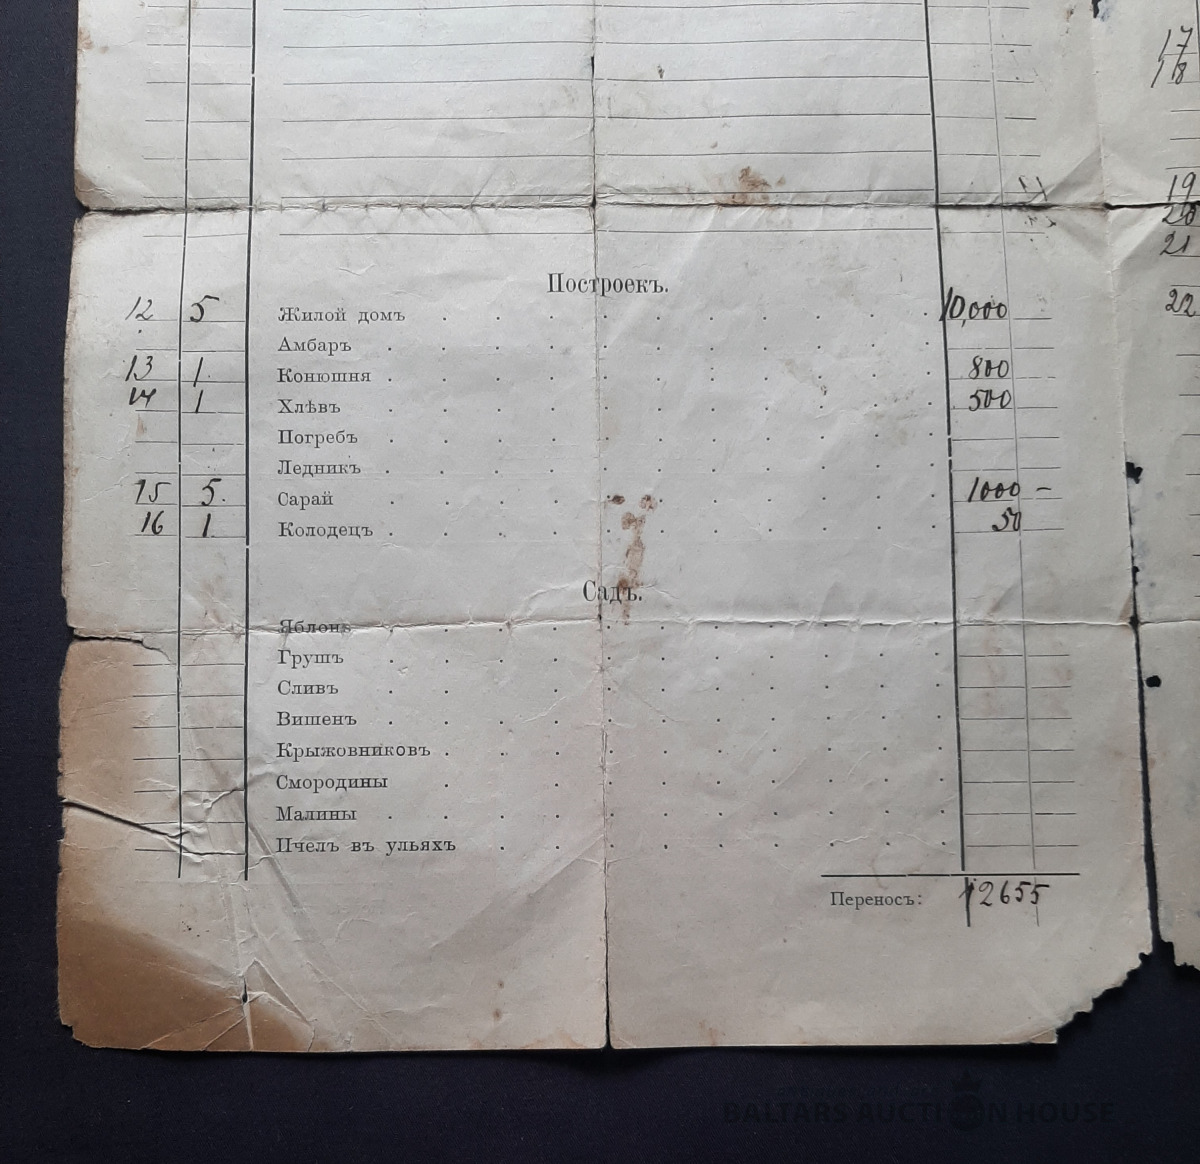 17
18
19
20
21
22
Построекъ.
12 5 Жилой домъ 10,000
Амбаръ
13 1 Конюшня 800
14 1 Хлѣвъ 500
Погребъ
Ледникъ
15 5. Сарай 1000 –
16 1 Колодецъ 50
Садъ.
Яблонь
Грушъ
Сливъ
Вишенъ
Крыжовниковъ
Смородины
Малины
Пчелъ въ ульяхъ
Переносъ: 12655
BALTARS AUCTION HOUSE